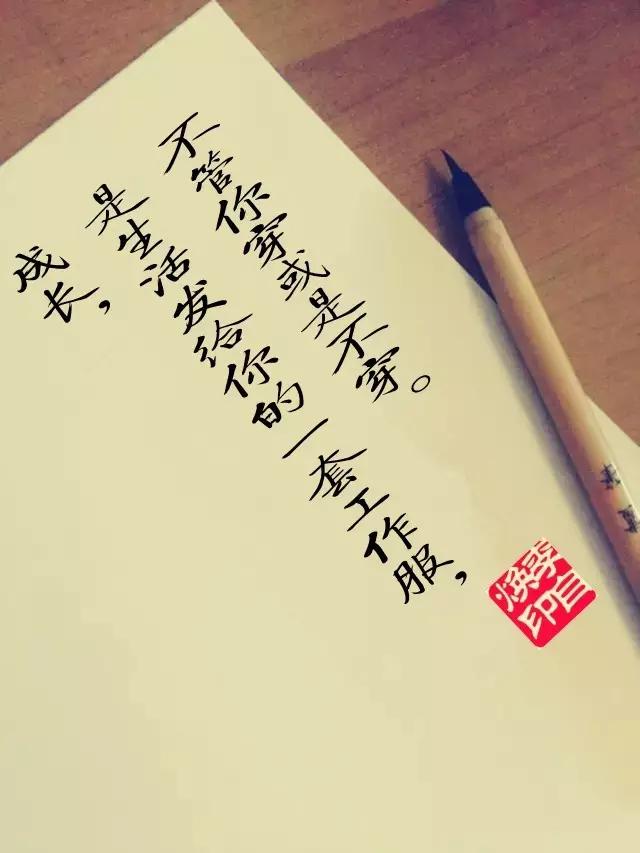 成长，
是生活发给你的一套工作服，
不管你穿或是不穿。